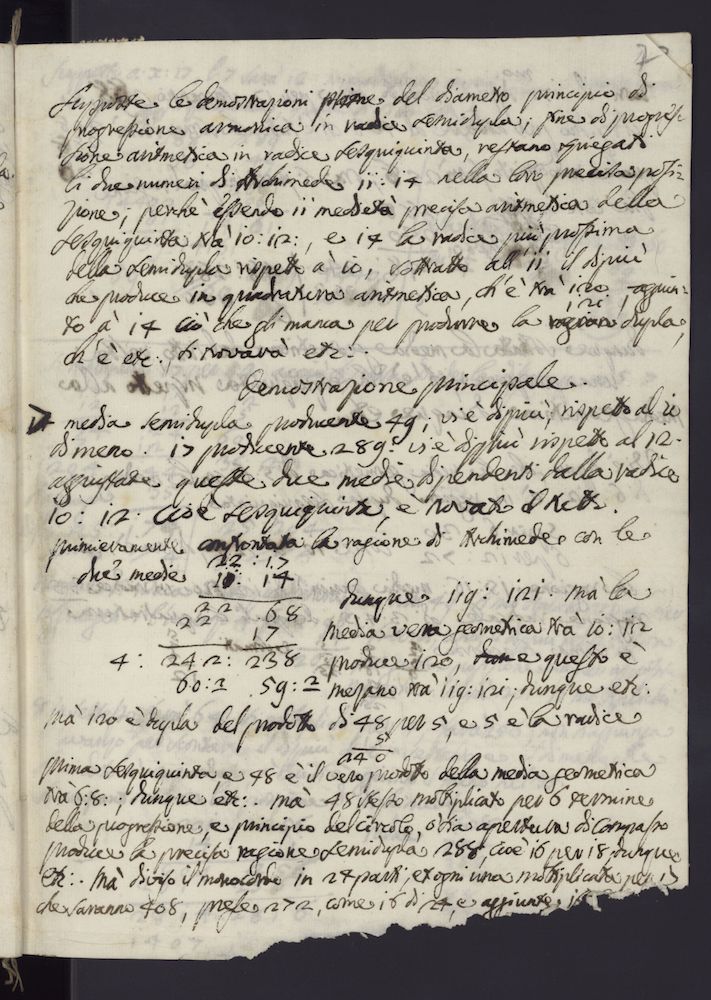 7
Supposte le demostrazioni prime del diametro principio di
progressione armonica in radice semidupla; fine di progres-
sione aritmetica in radice sesquiquinta, restano spiegati
li due numeri di Archimede 11: 14 nella loro precisa posi=
zione; perchè essendo 11 medietà precisa aritmetica della
sesquiquinta trà 10: 12:, e 14 la radice più prossima
della semidupla rispetto à 10, sottratto all' 11 il di più
che produce in quadratura aritmetica, ch' è trà 120 , aggiun-
121
to à 14 ciò che gli manca per produrre la ragion dupla,
ch' è etc: si troverà etc:
Demostrazione principale.
7 media semidupla producente 49; vi è di più, rispetto al 10
di meno. 17 producente 289: vi è di più rispetto al 12.
aggiustate queste due medie dipendenti dalla radice
10: 12. cioè sesquiquinta, è trovato il tutto.
primieramente confrontata la ragione di Archimede con le
due medie
22 : 17
11: 14
22 68
22 17
4: 242: 238
60:2 59:2
dunque 119: 121. mà la
media vera geometrica trà 10: 12
produce 120, e questo è
mezano trà 119: 121; dunque etc:
mà 120 è dupla del prodotto di 48 per 5, e 5 è la radice
5
240
prima sesquiquinta, e 48 è il vero prodotto della media geometrica
trà 6:8:; dunque etc:. mà 48 istesso moltiplicato per 6 termine
della progressione, e principio del circolo, ò sia apertura di compasso
produce la precisa ragione semidupla 288, cioè 16 per 18 dunque
etc:. Mà diviso il monocordo in 24 parti, et ogni una moltiplicata per 17
che saranno 408, prese 272, come 16 di 24, e aggiunte